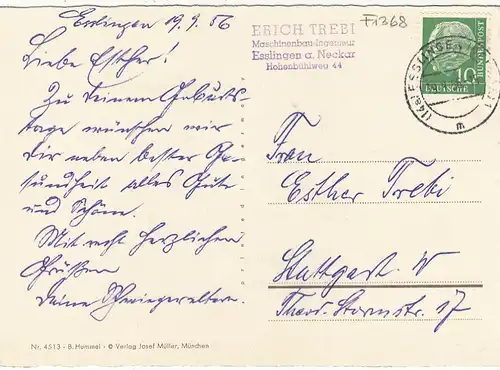 Esslingen 19.9.56
Liebe Esther!
Zu Deinem Geburts-
tage wünschen wir
Dir neben bester Ge-
sundheit alles Gute
und Schöne.
Mit recht herzlichen
Grüßen
Deine Schwiegereltern.
Nr. 4513 - B. Hummel - © Verlag Josef Müller, München
ERICH TREBI
Maschinenbau-Ingenieur
Esslingen a. Neckar
Hohenbühlweg 44
F1368
10
DEUTSCHE
BUNDESPOST
(14a) ESSLINGEN
m
Frau
Esther Trebi
Stuttgart W
Theod.-Stormstr. 17